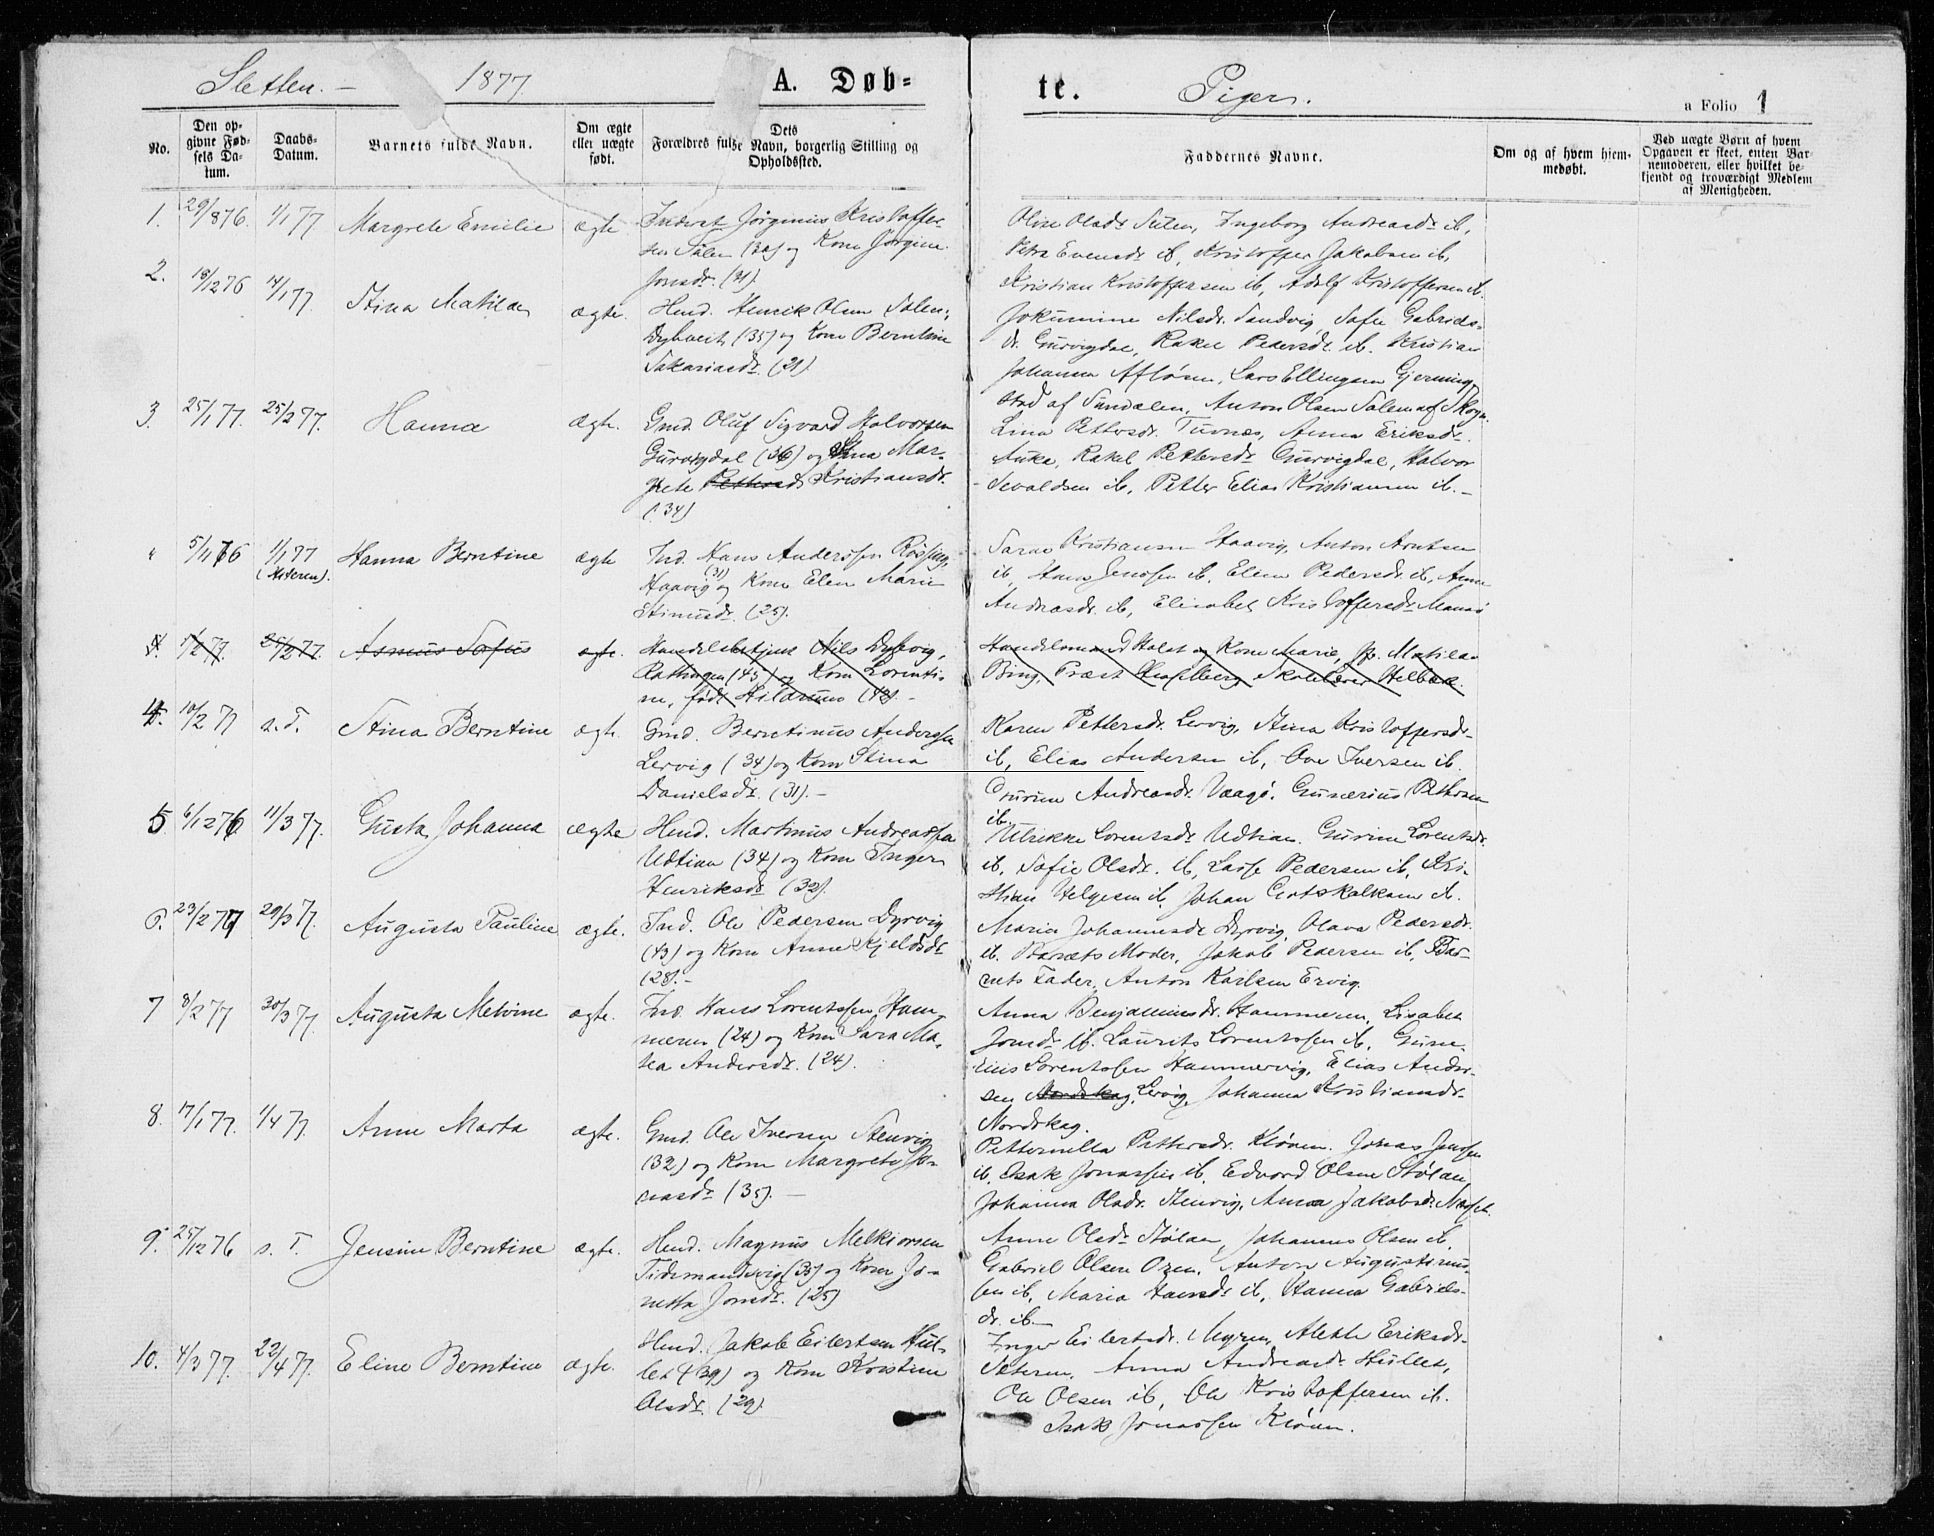 Sletten. — 1877. A. Døb= te. Piger. a Folio 1
No.
Den op-
givne Fød-
sels Da-
tum.
Daabs-
Datum.
Barnets fulde Navn.
Om ægte
eller uægte
født.
Dets
Forældres fulde Navn, borgerlig Stilling og
Opholdssted.
Faddernes Navne.
Om og af hvem hjem-
medøbt.
Ved uægte Børn af hvem
Opgaven er skeet, enten Bar-
nemoderen, eller hvilket be-
kjendt og troværdigt Medlem
af Menigheden.
1. 29/876. 1/177 Margrete Emilie ægte Inderst Jørginus Kristoffer-
sen Sulen (30) og Kone Jørgine
Jonsdr. (31).
Oline Olsdr Sulen, Ingeborg Andreasdr ib,
Petra Evensdr ib, Kristoffer Jakobsen ib,
Kristian Kristoffersen ib, Adolf Kristoffersen ib.
2. 18/1276 14/177 Stina Matilda ægte. Husd. Henrik Olsen Salen,
Dybveit, (35) og Kone Berntine
Sakariasdr. (31)
Jokumine Nilsdr. Sandvig, Sofie Gabriels-
dr. Gurvigdal, Rakel Pedersdr. ib. Kristian
Johannes Lars Ellingsen
af Sundalen, Anton Olsen Salen af
3. 25/177. 25/277. Hanna ægte. Gmd. Oluf Sigvard Halvorsen
Gurvigdal (36) og Mar-
grete Pettersdr Kristiansdr.
(34)
Lina Pettersdr. Tuvnes, Anna Eriksdr.
Rakel Pettersdr Gurvigdal, Halvor
Sevaldsen ib, Petter Elias Kristiansen ib. -
" 5/1176 1/177 (Hiteren). Hanna Berntine ægte Ind. Hans Anderssen Røssing,
Haavig (31) og Kone Elen Marie
Stinusdr. (25).
Kristiansen Haavig, Anton Arntsen
ib, Hans Jenssen ib, Eline Pedersdr. ib, Anne
Andreasdr. ib, Elisabet Kristoffersdr
4. 1/277. 25/277. Asmus Sofus ægte. Handelsbetjent Nils Dybvig,
(45) og Kone Lorenti-
ne, født Hildrum (42) -
Handelsmand Holst og Kone Marie, Matilde
Bing, Præst Hasselberg, Skolelærer
4. 10/277 s. D. Stina Berntine ægte. Gmd. Berntinus Anderssen
Lervig (34) og Kone Stina
Danielsdr. (31). -
Karen Pettersdr. Lervig, Stina Kristoffersdr-
ib, Elias Andersen ib, Ove Iversen ib.
Andreasdr. Vaagø. Gunerius Pettersen
ib.
5 6/1276 11/377. Gusta, Johanna ægte Husd. Martinus Andreassen
Udtian (34) og Kone Inger
Henriksdr (32).
Ulrikke Lorentsdr Udtian. Gurine Lorentsdr.
ib. Sofie Olsdr. ib, Lasse Pedersen ib, Kri-
stian Helgesen ib, Johan Gotskalksen ib.
6. 23/277 29/377. Augusta Pauline ægte. Ind. Ole Pedersen Dyrvig
(43) og Kone Anne Kjeldsdr
(28). -
Maria Johannesdr Dyrvig, Olava Pedersdr.
ib. Barnets Moder, Jakob Pedersen ib, Bar-
nets Fader, Anton Karlsen Ervig.
7 8/277 30/377. Augusta Melvine ægte. Ind. Hans Lorentssen Ham-
meren (24) og Kone Sara Ma-
tea Andersdr. (24).
Anna Benjaminsdr. Hammeren, Lisabet
Jonsdr ib. Laurits Lorentssen ib, Gune-
rius Lorentssen Hammervig, Elias Ander-
sen Nordskag, Lervig, Johanna Kristiansdr.
Nordskag.
8. 17/177. 1/477. Anne Marta ægte. Gmd. Ole Iversen Stenvig
(32) og Kone Margrete Jo-
nasdr (35). -
Petternilla Pettersdr. Kløven. Jonas Jenssen
ib, Isak Jonassen ib, Edvard Olsen Stølan
Johanna Olsdr. Stenvig, Anna Jakobsdr.
9. 25/1276 s. D. Jensine Berntine ægte. Husd. Magnus Melkiorsen
Tidemandsvig (35) og Kone Jo-
netta Jonsdr. (25)
Anne Olsdr Stølan, Johannes Olsen ib,
Gabriel Olsen Ozen. Anton Augustinus-
sen ib, Maria Hansdr ib, Hanna Gabriels-
dr. ib
10. 4/377. 22/477. Eline Berntine ægte. Husd. Jakob Eilertsen Hul-
let (39) og Kone Kristine
Olsdr. (29)
Inger Eilertsdr. Myren, Alette Eriksdr.
Seteren, Anna Andreasdr Hullet,
Ole Olsen ib, Ole Kristoffersen ib.
Isak Jonassen Kløven.